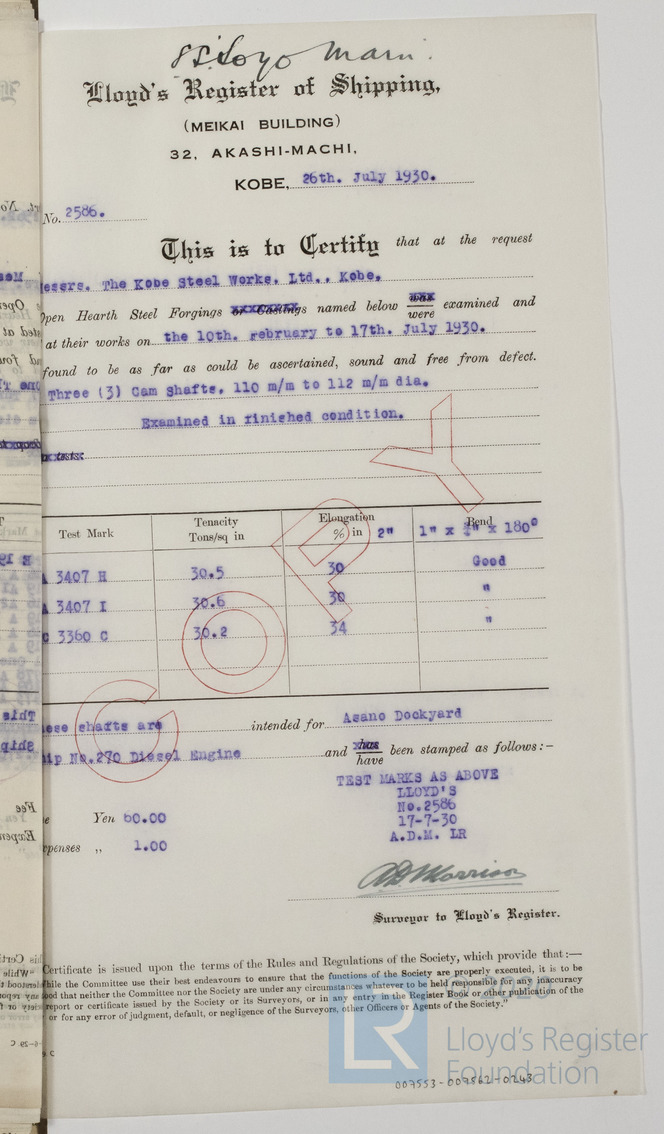 Lloyd's Register of Shipping,
(MEIKAI BUILDING)
32, AKASHI-MACHI,
KOBE, 26th. July 1930.
No. 2586.
This is to Certify that at the request
essrs. The Kobe Steel Works, Ltd., Kobe.
Open Hearth Steel Forgings or Castings named below was were examined and
at their works on the 10th. February to 17th. July 1930.
found to be as far as could be ascertained, sound and free from defect.
Three (3) Cam Shafts, 110 m/m to 112 m/m dia.
Examined in finished condition.
COPY
Test Mark Tenacity Tons/sq in Elongation % in 2" Bend 1" x 180°
3407 H 30.5 30 Good
3407 I 30.6 30 "
C 3360 C 30.2 34 "
ese shafts are intended for Asano Dockyard
hip No.270 Diesel Engine and has have been stamped as follows:-
TEST MARKS AS ABOVE
LLOYD'S
No.2586
17-7-30
A.D.M. LR
e Yen 60.00
penses „ 1.00
A.D. Morrison
Surveyor to Lloyd's Register.
Certificate is issued upon the terms of the Rules and Regulations of the Society, which provide that:—
hile the Committee use their best endeavours to ensure that the functions of the Society are properly executed, it is to be
ood that neither the Committee nor the Society are under any circumstances whatever to be held responsible for any inaccuracy
report or certificate issued by the Society or its Surveyors, or in any entry in the Register Book or other publication of the
or for any error of judgment, default, or negligence of the Surveyors, other Officers or Agents of the Society."
LR
Lloyd's Register
Foundation
007553-007562-0243